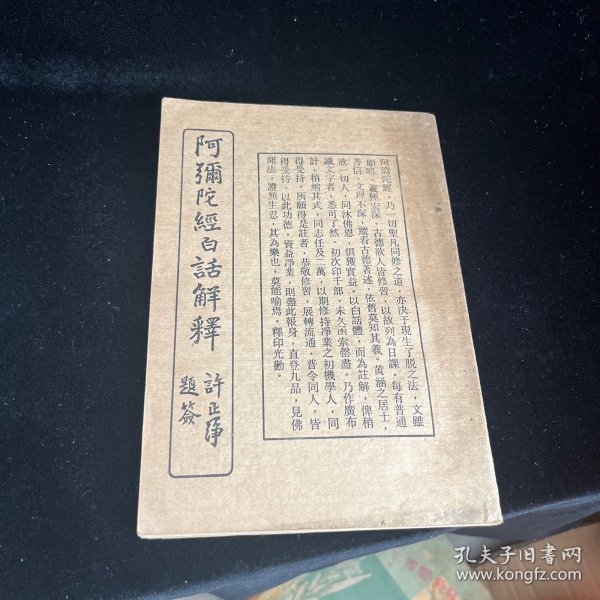 阿彌陀經，乃一切聖凡同修之道，亦決于現生了脫之法，文雖
顯略，義極宏深。古德欲人皆修習，以故列為日課，每有普通
善信，文理不深，縱看古德著述，依舊莫知其義。黃涵之居士，
欲一切人，同沐佛恩，俱獲實益。以白話體，而為註解，俾稍
識文字者，悉可了然。初次印千部，未久函索罄盡。乃作廣布
計，稍縮其式，同志任及二萬，以期修持淨業之初機學人，同
得受持，所願得是註者，恭敬修習，展轉流通，普令同人，皆
得受持。以此功德，資益淨業，則盡此報身，直登九品，見佛
聞法，證無生忍，其為樂也，莫能喻焉。釋印光勸。
阿彌陀經白話解釋
許止淨
題簽
孔夫子旧书网
www.kongfz.com